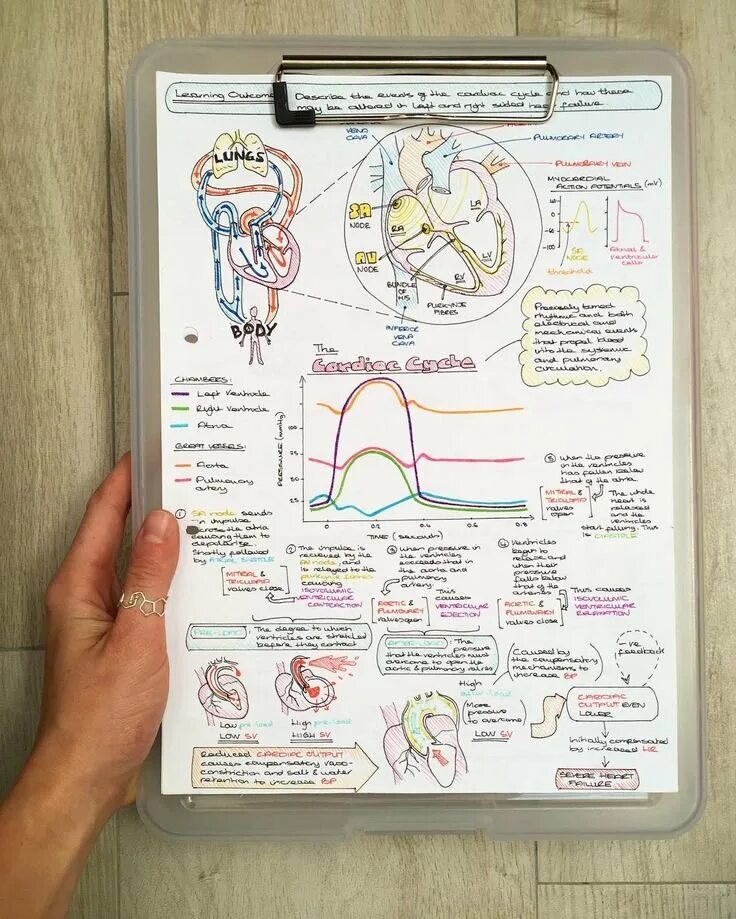 Learning Outcome: Describe the events of the cardiac cycle and how these
may be altered in left and right sided heart failure.
LUNGS
BODY
VENA
CAVA
PULMONARY ARTERY
PULMONARY VEIN
SA
NODE
AV
NODE
RA
LA
LV
RV
BUNDLE
OF
HIS
PURKINJE
FIBRES
INFERIOR
VENA
CAVA
MYOCARDIAL
ACTION POTENTIALS (mV)
40
0
-65
-100
SA
NODE
threshold
Atrial &
ventricular
cells
Precisely timed
rhythmic and both
electrical and
mechanical events
that propel blood
into the systemic
and pulmonary
circulation.
The
Cardiac Cycle
CHAMBERS:
Left Ventricle
Right Ventricle
Atria
GREAT VESSELS:
Aorta
Pulmonary
artery
PRESSURE (mmHg)
100
75
50
25
0
0.2
0.4
0.6
0.8
TIME (seconds)
① SA node sends
an impulse
across the atria
causing them to
depolarise.
Shortly followed
by ATRIAL SYSTOLE
MITRAL &
TRICUSPID
valves close
② The impulse is
received by the
AV node, and
is relayed to the
purkinje fibres
causing
ISOVOLUMIC
VENTRICULAR
CONTRACTION
③ When pressure in
the ventricles
exceeds that in
the aorta and
pulmonary
artery.
AORTIC &
PULMONARY
valves open
This
causes
VENTRICULAR
EJECTION
④ Ventricles
begin to
relax and
when their
pressure
falls below
that of the
arteries
AORTIC &
PULMONARY
valves close
This causes
ISOVOLUMIC
VENTRICULAR
RELAXATION
⑤ When the pressure
in the ventricles
has fallen below
that of the atria
MITRAL & TRICUSPID
valves open
The whole
heart is
relaxed and
the ventricles
start filling. This
is DIASTOLE
PRE-LOAD: The degree to which
ventricles are stretched
before they contract
Low pre-load
LOW SV
High pre-load
HIGH SV
AFTER-LOAD: The
pressure
that the ventricles must
overcome to open the
aortic & pulmonary valves
High
after-load
(More
pressure
to overcome)
LOW SV
Reduced CARDIAC OUTPUT
causes compensatory vaso-
constriction and salt & water
retention to increase BP
(Caused by
the compensatory
mechanisms to
increase BP)
-ve
feedback
CARDIAC
OUTPUT EVEN
LOWER
Initially compensated
by increased HR
SEVERE HEART
FAILURE